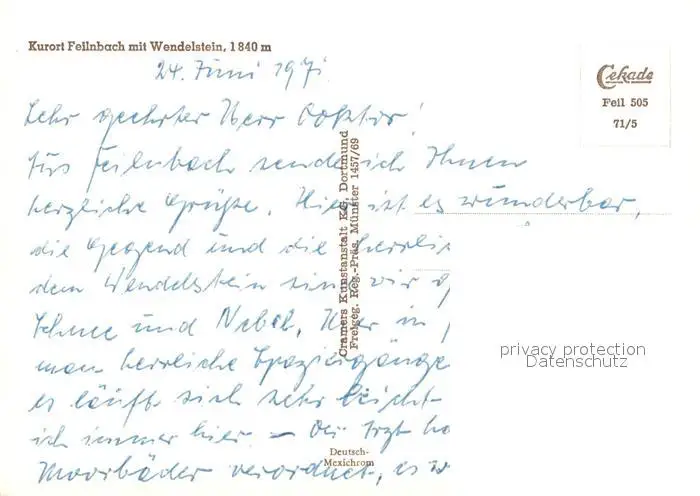 Kurort Feilnbach mit Wendelstein, 1840 m
24. Juni 1971
Sehr geehrter Herr Doktor!
Aus Feilnbach sende ich Ihnen
herzliche Grüße. Hier ist es wunderbar,
die Gegend und die herrli
dem Wendelstein sind wir g
Schnee und Nebel. Hier in
man herrliche Spaziergänge
es läuft sich sehr leicht
ich immer hier. – Der Arzt ha
Moorbäder verordnet, es w
Cekade
Feil 505
71/5
Cramers Kunstanstalt KG, Dortmund
Freigeg. Reg.-Präs. Münster 1457/69
privacy protection
Datenschutz
Deutsch-
Mexichrom